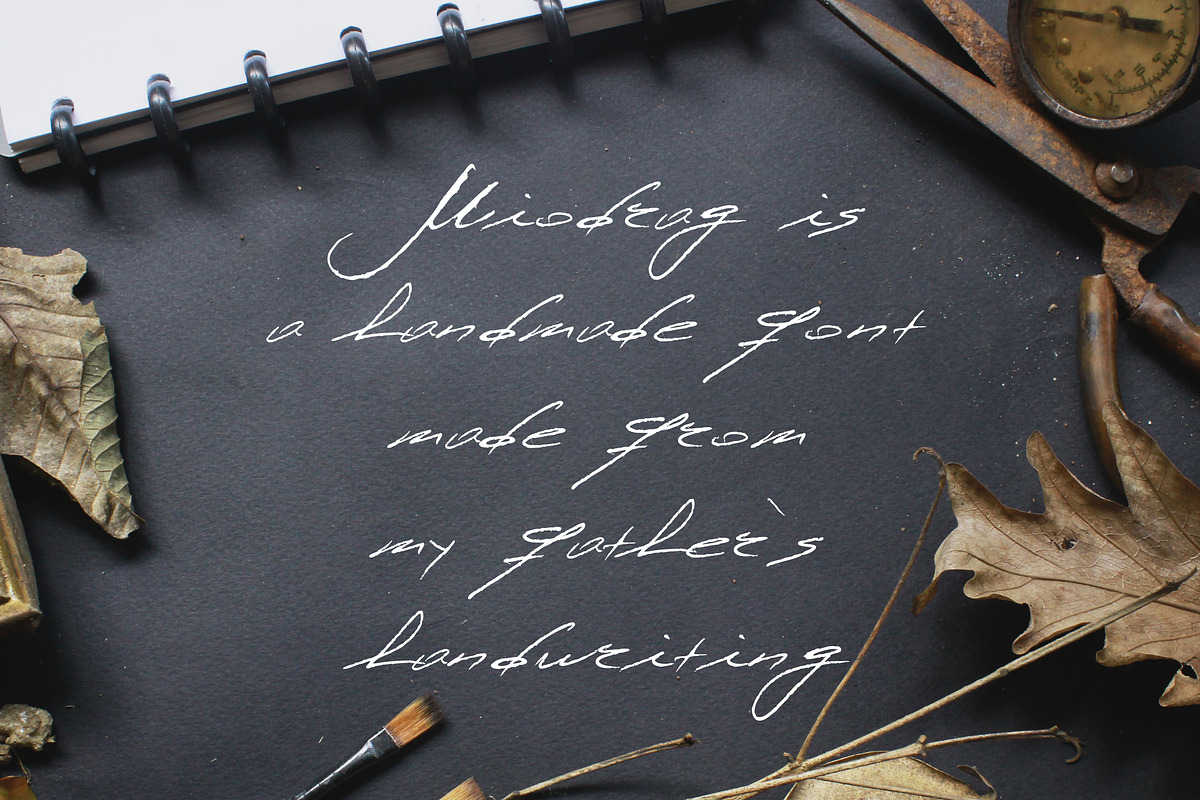 Miodrag is
a handmade font
made from
my father`s
handwriting